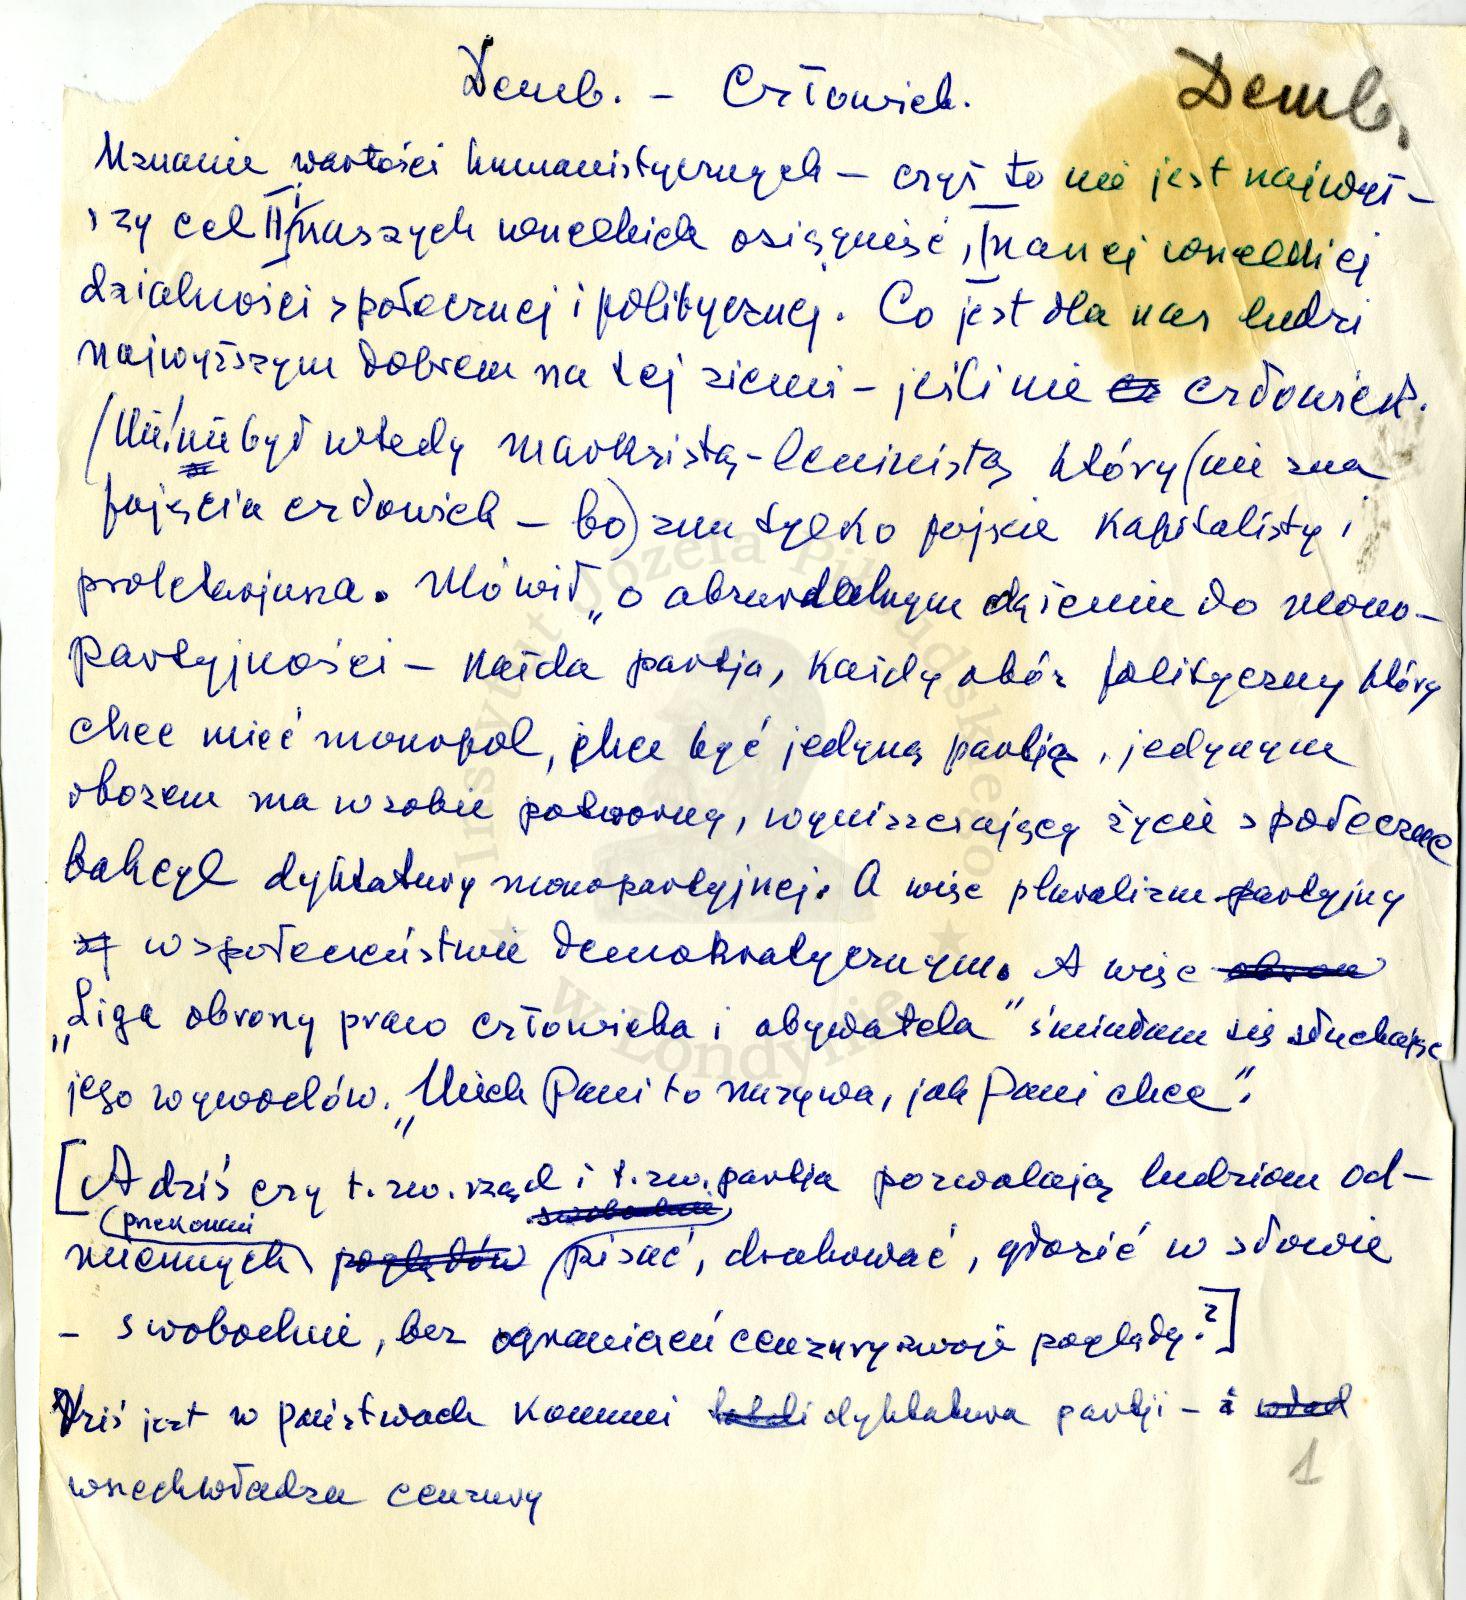 Demb. – Człowiek.
Demb.
Uznanie wartości humanistycznych – czyż to nie jest najwyż-
szy cel II) naszych wszelkich osiągnięć, I naszej wszelkiej
działalności społecznej i politycznej. Co jest dla nas ludzi
najwyższym dobrem na tej ziemi – jeśli nie cz człowiek.
(Nie! nie był wtedy marksistą-leninistą który (nie zna
pojęcia człowiek – bo) zna tylko pojęcie kapitalisty i
proletarjusza. Mówił „o absurdalnym dążeniu do mono-
partyjności – każda partja, każdy obóz polityczny który
chce mieć monopol, chce być jedyną partją, jedynym
obozem ma w sobie potworny, wyniszczający życie społeczne
bakcyl dyktatury monopartyjnej. A więc pluralizm partyjny
w społeczeństwie demokratycznym. A więc obron
„Liga obrony praw człowieka i obywatela” śmiałam się słuchając
jego wywodów. „Niech Pani to nazywa, jak Pani chce”.
[A dziś czy t.zw. rząd i t.zw. partja pozwalają ludziom od-
(przekonań swobodnie
miennych poglądów pisać, drukować, głosić w słowie
– swobodnie, bez ograniczeń cenzury swoje poglądy?]
Dziś jest w państwach komuni dyktatura partji – i wład
wszechwładza cenzury
1
Instytut Józefa Piłsudskiego
w Londynie